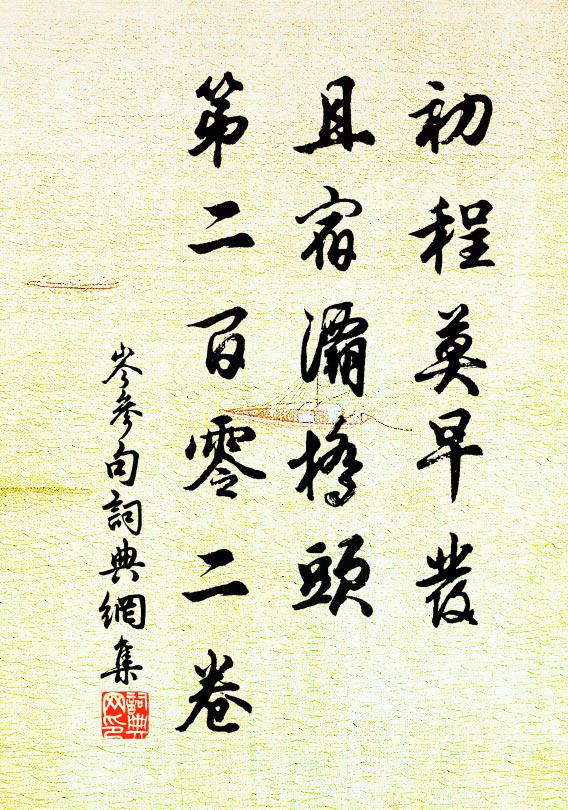 初程莫早發
且宿灞橋頭
第二百零二卷
岑參句詞典網集
詞典网印